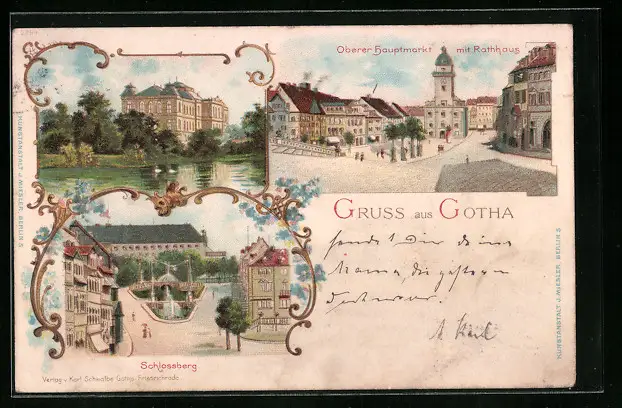 Oberer Hauptmarkt mit Rathhaus
GRUSS aus GOTHA
sendet Dir deine
Mama, die gestern
Schlossberg
Verlag v. Karl Schwalbe Gotha-Friedrichroda
KUNSTANSTALT J. MIESLER, BERLIN S
KUNSTANSTALT J. MIESLER, BERLIN S